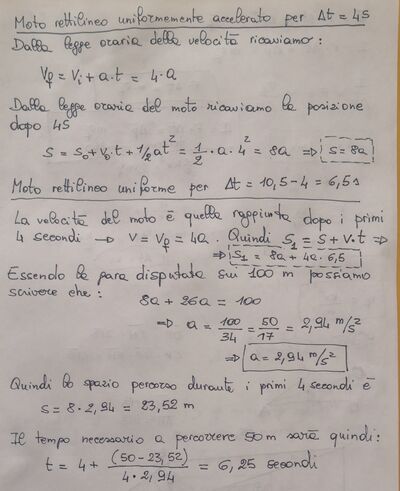 Moto rettilineo uniformemente accelerato per Δt = 4s
Dalla legge oraria della velocità ricaviamo:
Vf = Vi + a·t = 4·a
Dalla legge oraria del moto ricaviamo la posizione
dopo 4s
S = S₀ + V₀·t + 1/2 at² = 1/2 · a · 4² = 8a ⇒ S = 8a
Moto rettilineo uniforme per Δt = 10,5 - 4 = 6,5s
La velocità del moto è quella raggiunta dopo i primi
4 secondi → V = Vf = 4a. Quindi S₁ = S + V·t ⇒
⇒ S₁ = 8a + 4a·6,5
Essendo la gara disputata sui 100 m possiamo
scrivere che:
8a + 26a = 100
⇒ a = 100/34 = 50/17 = 2,94 m/s²
⇒ a = 2,94 m/s²
Quindi lo spazio percorso durante i primi 4 secondi è
S = 8·2,94 = 23,52 m
Il tempo necessario a percorrere 50m sarà quindi:
t = 4 + (50-23,52)/(4·2,94) = 6,25 secondi